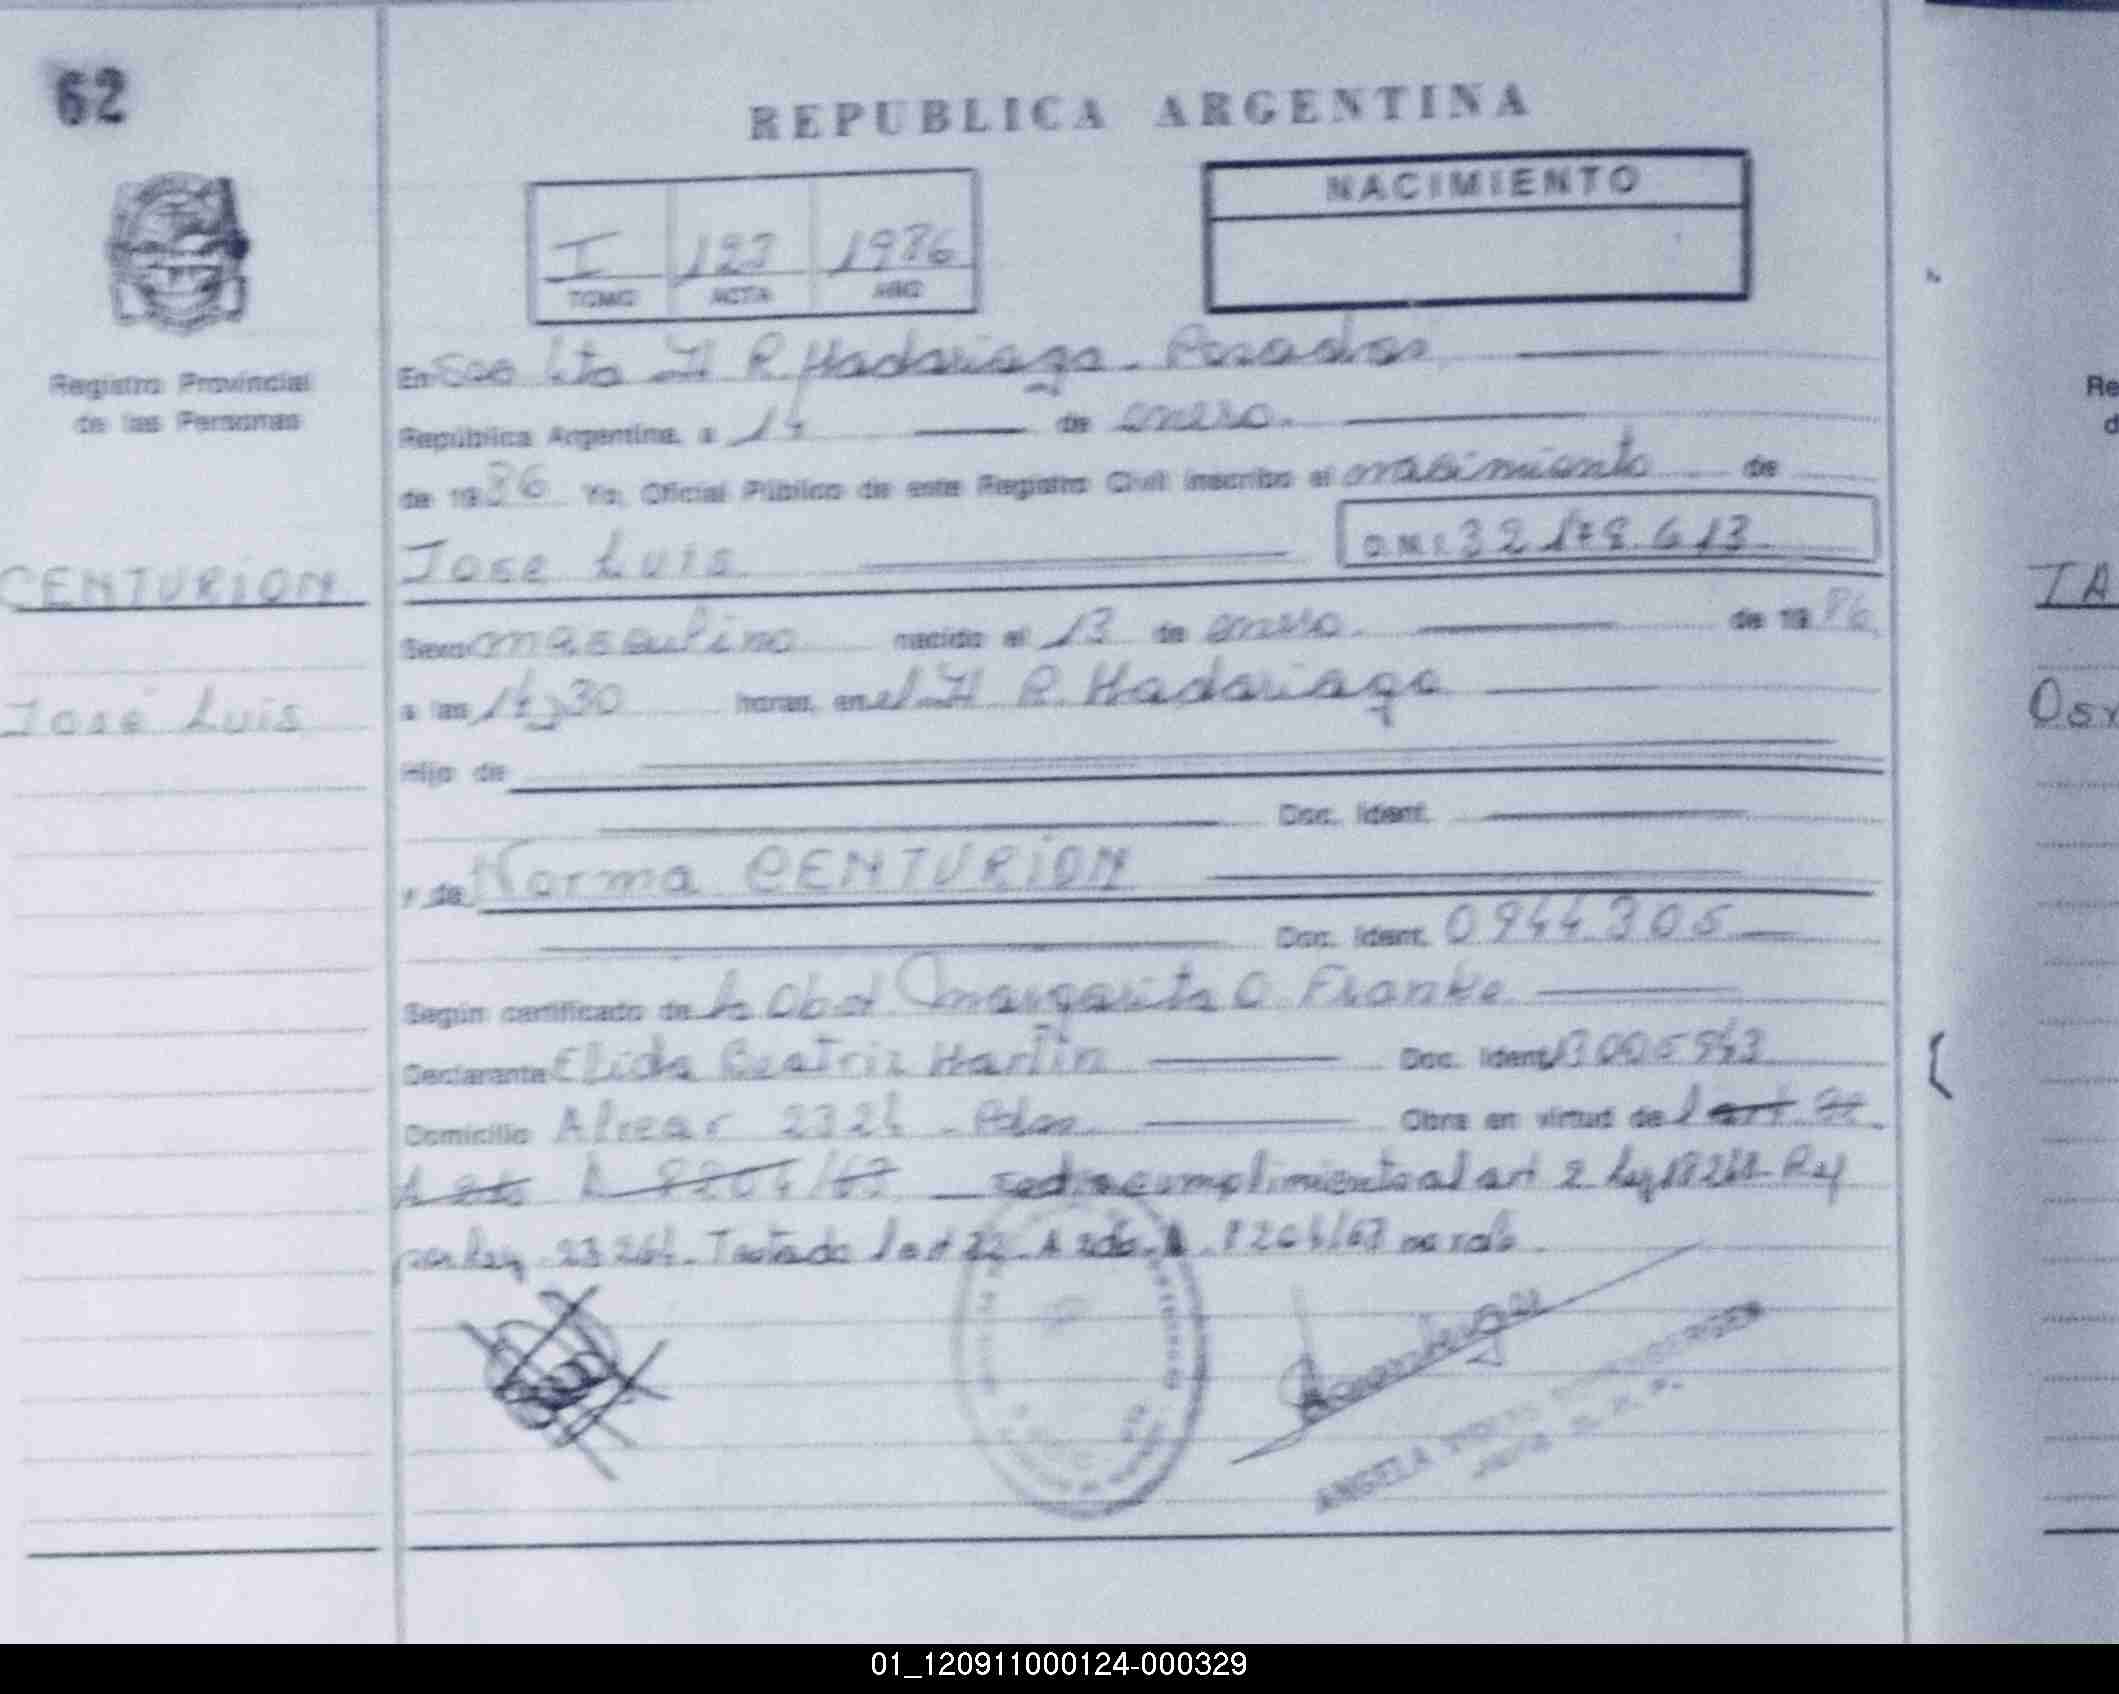 62
REPUBLICA ARGENTINA
NACIMIENTO
I 123 1986
TOMO ACTA AÑO
Registro Provincial
de las Personas
En Sec H R. Madariaga - Posadas
República Argentina, a de enero
de 1986 Yo, Oficial Público de este Registro Civil inscribo el nacimiento de
CENTURION
Jose Luis D.N.I. 32.178.613
Sexo masculino nacido el 13 de enero de 1986
José Luis
a las horas, en el H R. Madariaga
Hijo de
Doc. Ident.
y de Norma CENTURION
Doc. Ident. 0944305
Según certificado de la Obst Margarita O Franke
Declarante Elida Beatriz Martin Doc. Ident. 13005943
Domicilio Alvear 2324 - Pdas Obra en virtud de l art
8204/63 cumplimiento al art 2 Ley 18248 Ref
por Ley 23264 - Testado l art 8204/63 no vale
ANGELA
Re
d
TA
Osv
01_120911000124-000329